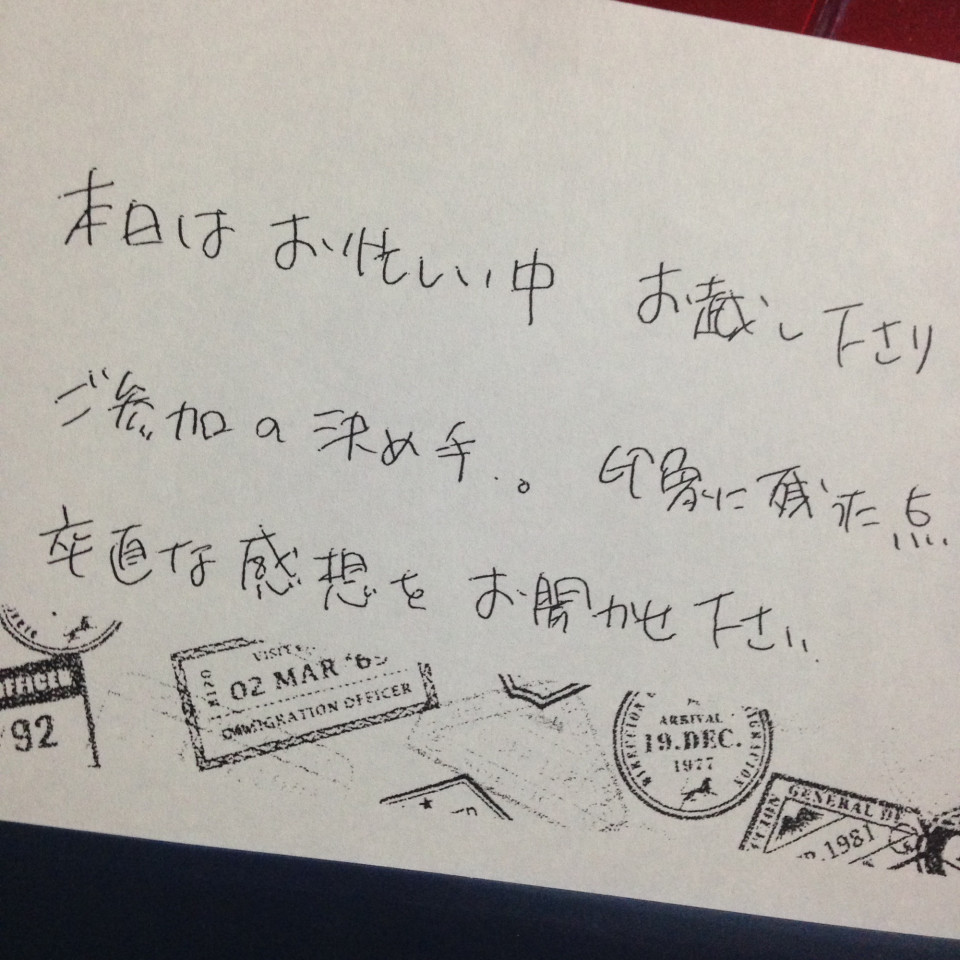 本日は お忙しい中 お越し下さり
ご参加の決め手。 印象に残った点
率直な感想を お聞かせ下さい
92
02 MAR
IMMIGRATION OFFICER
ARRIVAL
19.DEC.
1977
GENERAL
1981